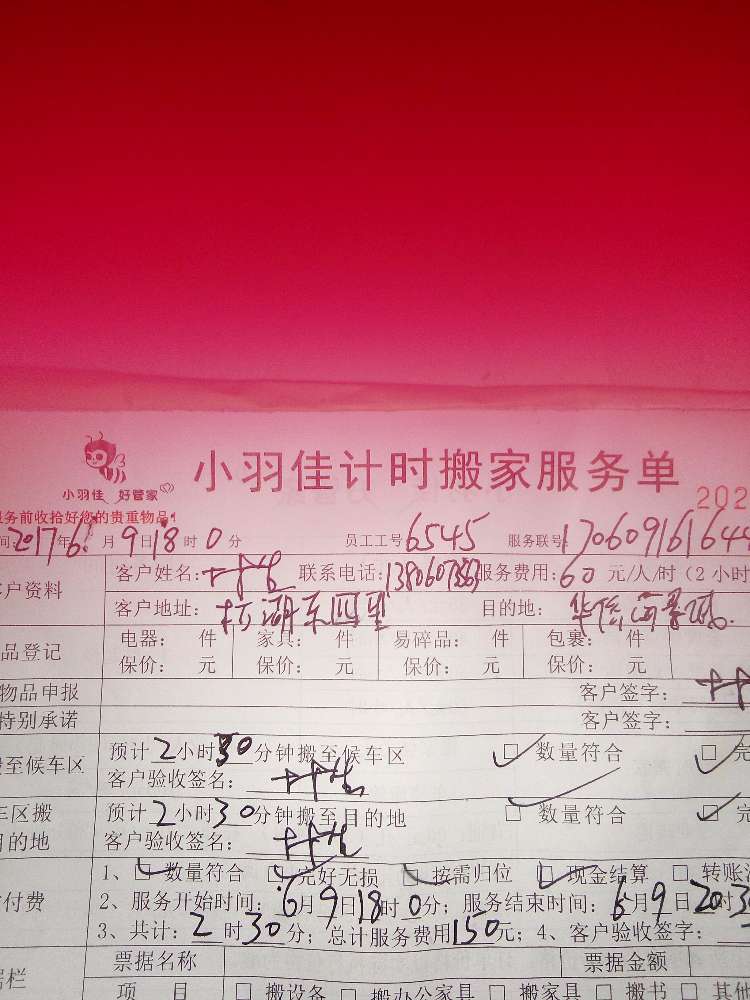 小羽佳 好管家
小羽佳计时搬家服务单
202
务前收拾好您的贵重物品!
间: 2017年6月9日18时0分 员工工号 6545 服务联号:
户资料 客户姓名: 联系电话: 服务费用: 60元/人/时(2小时
客户地址: 目的地:
品登记 电器: 件 家具: 件 易碎品: 件 包裹: 件
保价: 元 保价: 元 保价: 元 保价: 元
物品申报 客户签字:
特别承诺 客户签字:
至候车区 预计2小时30分钟搬至候车区 □ 数量符合 □ 完
客户验收签名:
车区搬 预计2小时30分钟搬至目的地 □ 数量符合 □ 完
目的地 客户验收签名:
付费 1、□ 数量符合 □ 完好无损 □ 按需归位 □ 现金结算 □ 转账
2、服务开始时间: 6月9日18时0分; 服务结束时间: 6月9日20时30
3、共计: 2时30分; 总计服务费用150元; 4、客户验收签字:
栏 票据名称 票据金额
项 目 □ 搬设备 □ 搬办公家具 □ 搬家具 □ 搬书 □ 其他